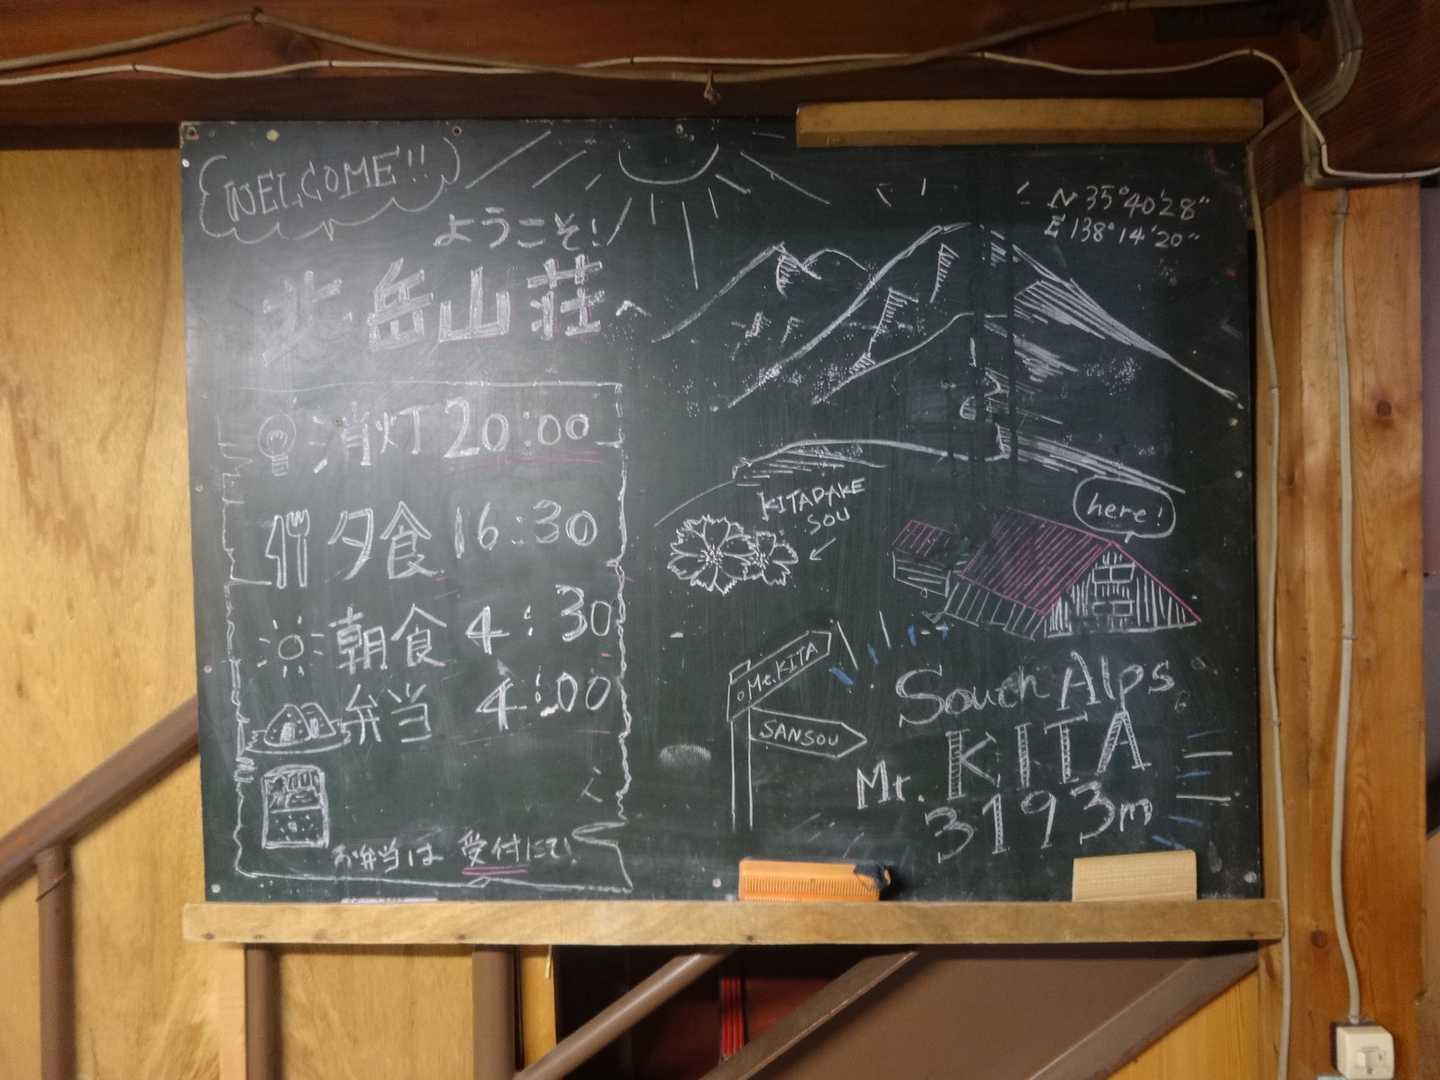 WELCOME!!
ようこそ!
北岳山荘
消灯 20:00
夕食 16:30
朝食 4:30
弁当 4:00
お弁当は 受付にて!
N 35°40'28"
E 138°14'20"
KITADAKE
SOU
here!
Mt.KITA
SANSOU
South Alps
Mt. KITA
3193m